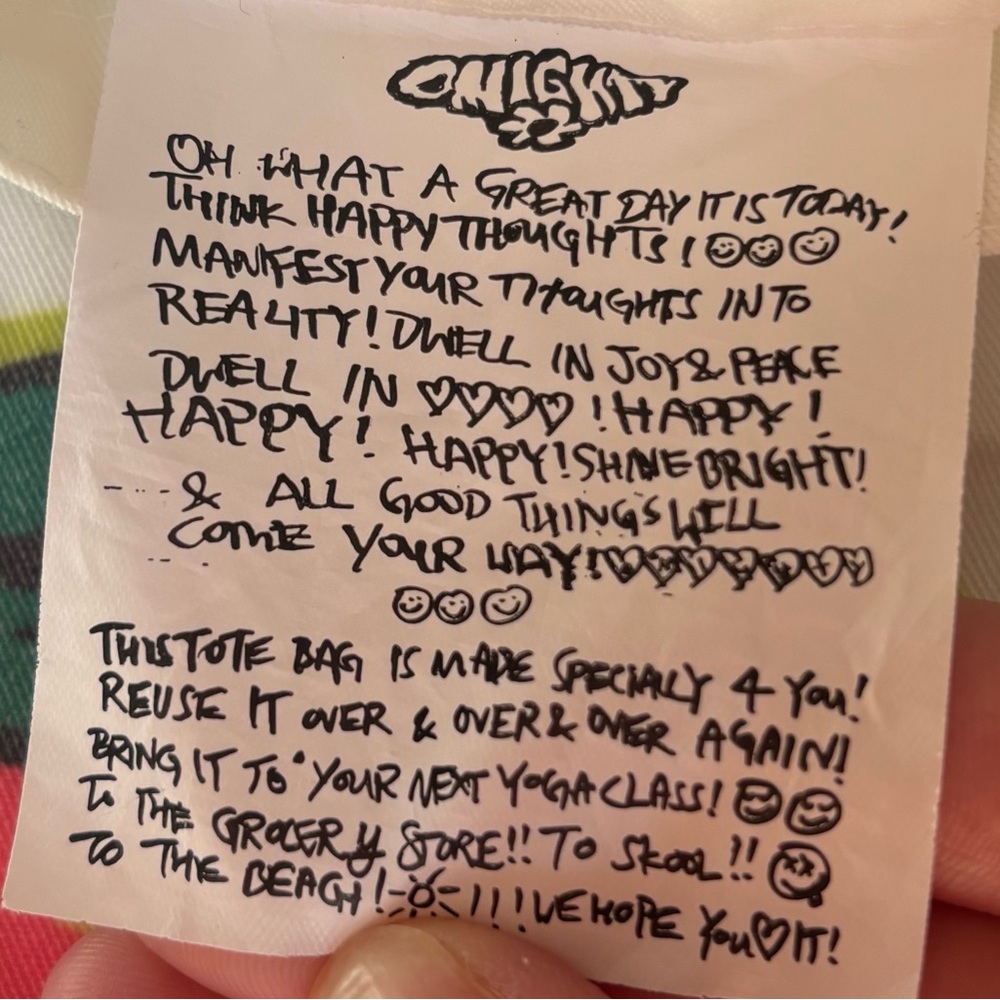 OMIGHTY
OH WHAT A GREAT DAY IT IS TODAY!
THINK HAPPY THOUGHTS! ☺☺☺
MANIFEST YOUR THOUGHTS INTO
REALITY! DWELL IN JOY & PEACE
DWELL IN ♡♡♡♡! HAPPY!
HAPPY! HAPPY! SHINE BRIGHT!
-...- & ALL GOOD THINGS WILL
COME YOUR WAY! ♡♡♡♡♡♡♡
☺☺☺
THIS TOTE BAG IS MADE SPECIALLY 4 YOU!
REUSE IT OVER & OVER & OVER AGAIN!
BRING IT TO YOUR NEXT YOGA CLASS! ☺☺
TO THE GROCERY STORE!! TO SKOOL!! ☺
TO THE BEACH! ☼ !!! WE HOPE YOU ♡ IT!